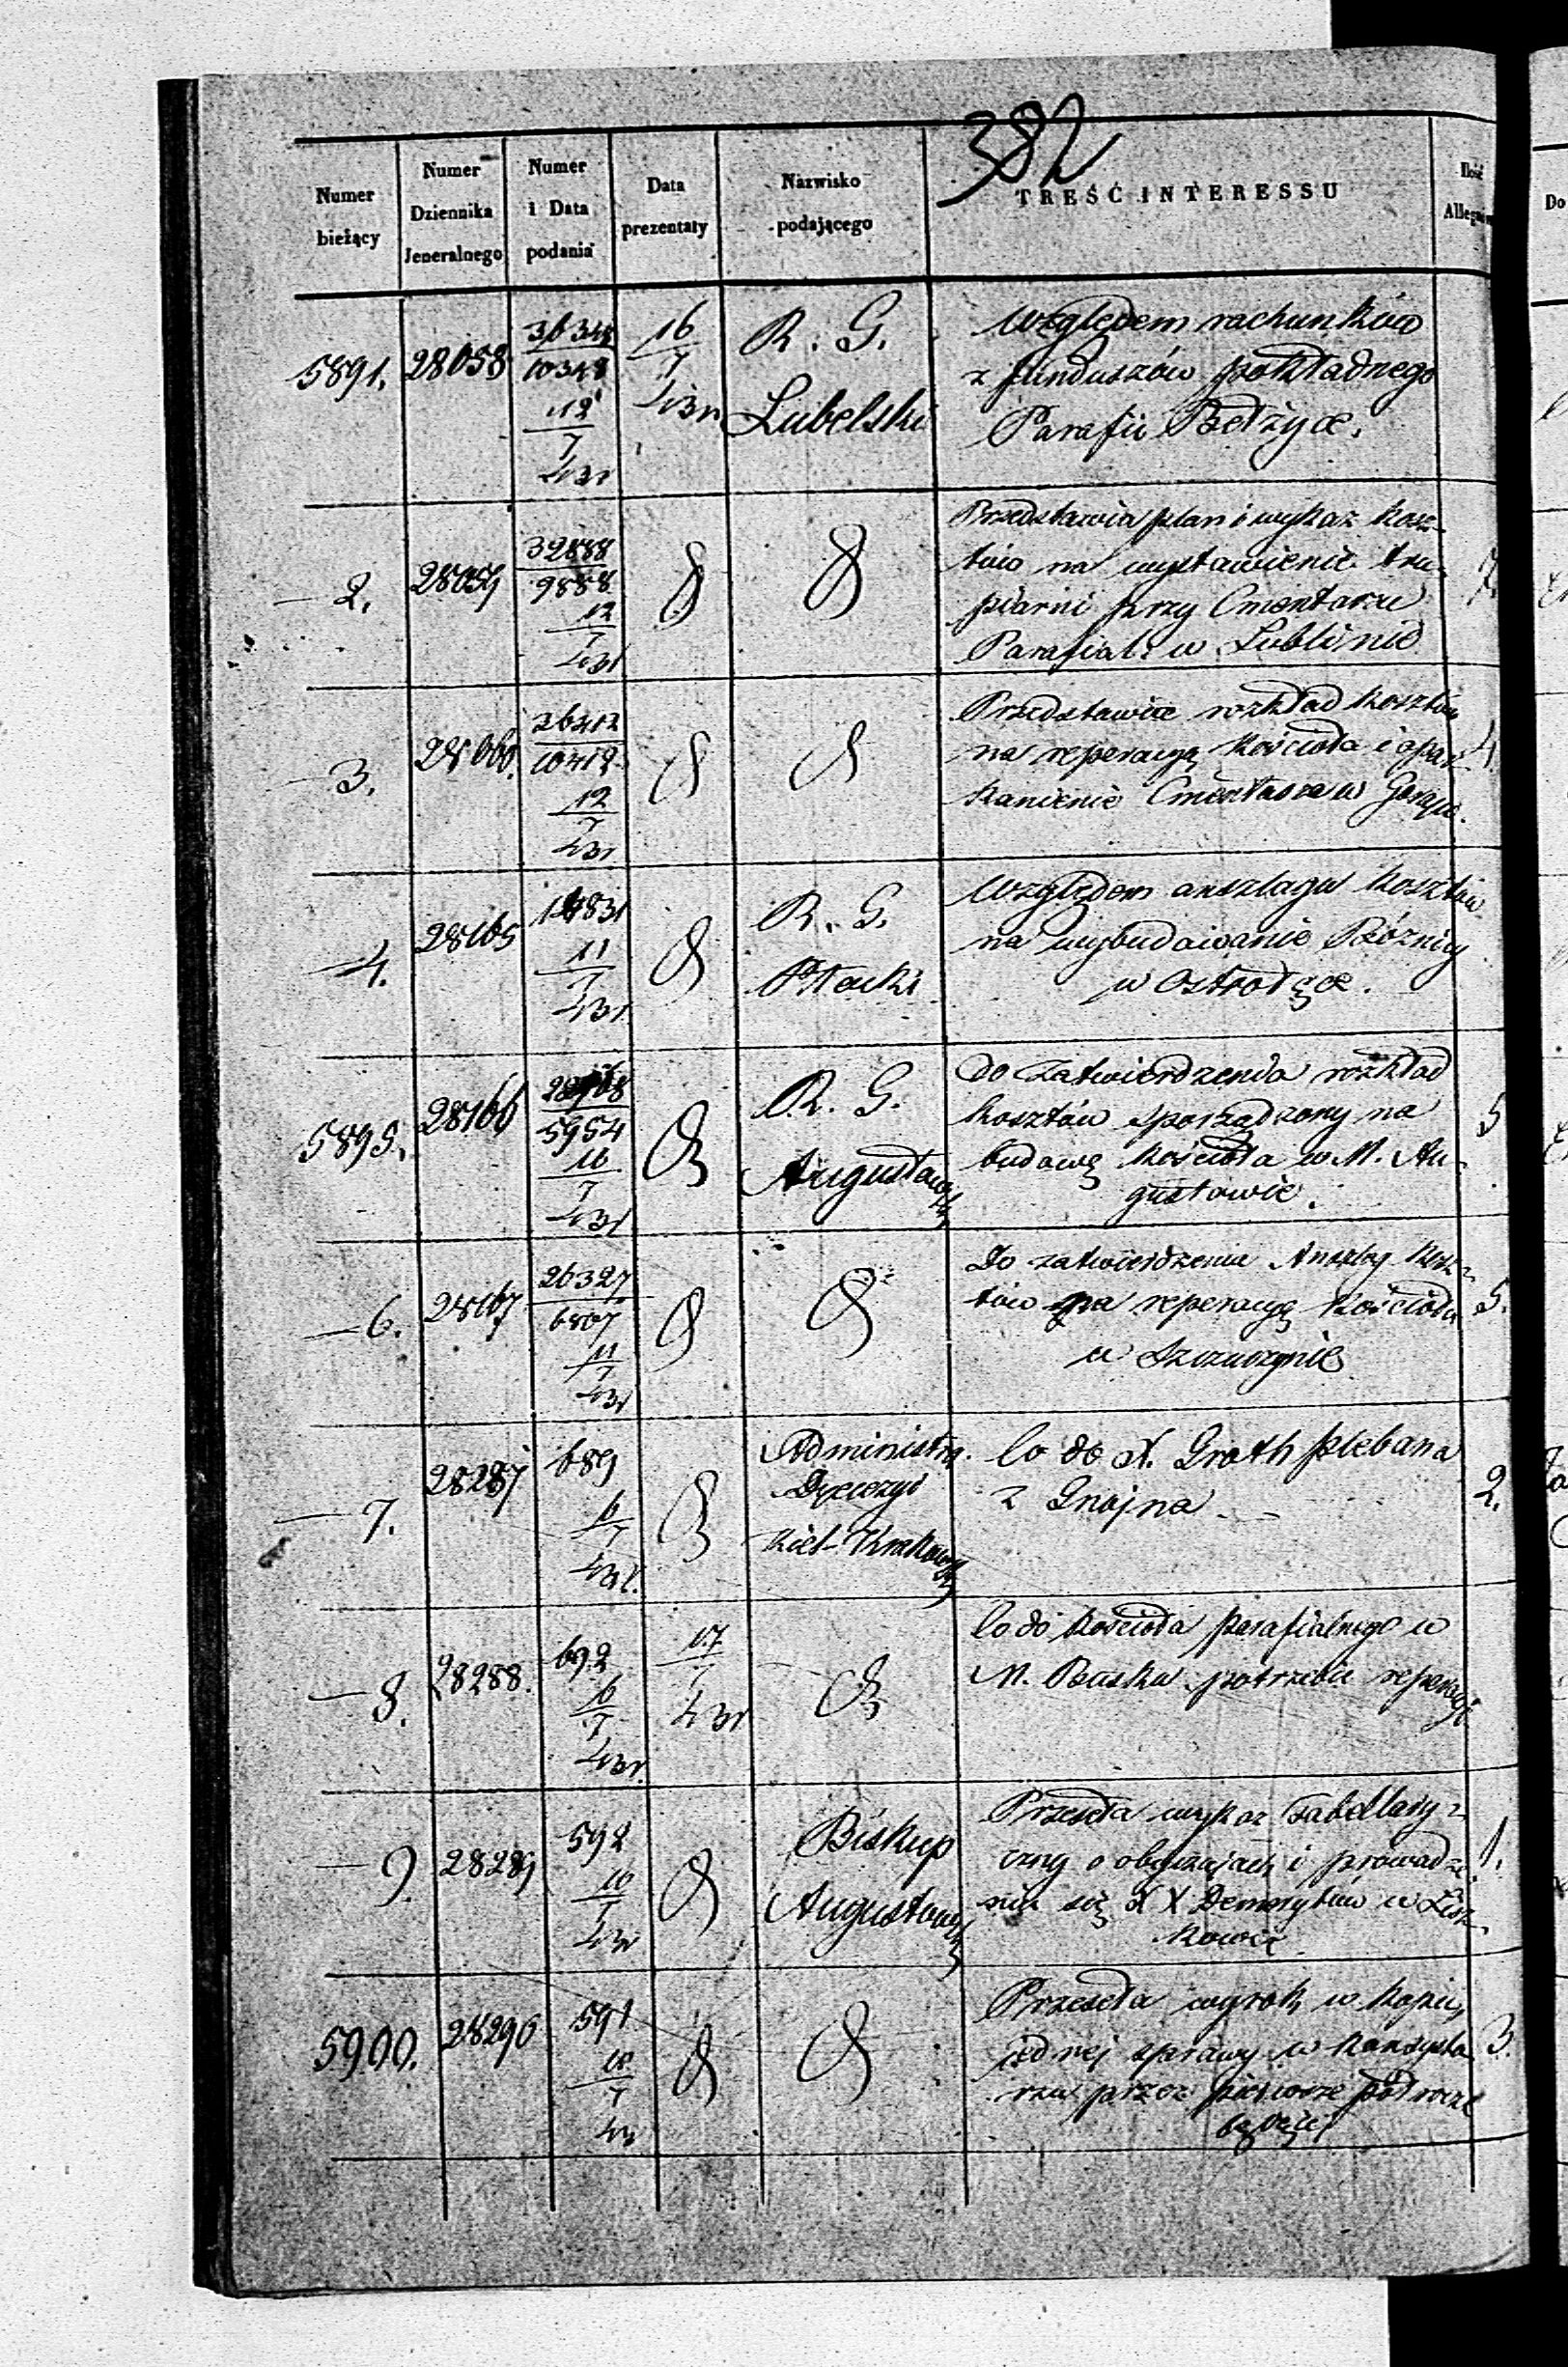 382
Numer bieżący
Numer Dziennika Jeneralnego
Numer i Data podania
Data prezentaty
Nazwisko podającego
TREŚĆ INTERESSU
Ilość
5891. 28058 12/7 16/7 R. G. Lubelski
Względem rachunków
z funduszów pokładnego
Parafii Bełżyce.
2. 28059 32888/9888 12/7
Przedstawia plan i wykaz kosz-
tów na wystawienie tru-
piarni przy Cmentarzu
Parafial: w Lublinie
7
3. 28060. 26412/10412 12/7
Przedstawia rozkład kosztów
na reperacyą kościoła i opar-
kanienie Cmentarza w
4.
4. 28165 11/7 R. G. Płocki
Względem anszlagu kosztów
na wybudowanie Bóżnicy
w Ostrołęce.
5895. 28166 5954 10/7 R. G. Augustowski
Do zatwierdzenia rozkład
kosztów sporządzony na
budowę kościoła w M. Au-
gustowie.
5
6. 28167 26327/6807 11/7
Do zatwierdzenia Anszlag kosz-
tów na reperacyą kościoła
w Szczuczynie
5.
7. 28287 689 6/7 Administr. Dyecezyi Kiel-Krakows
Co do X. Groth plebana
z Gnojna
2.
8. 28288. 692 6/7 17/7
Co do kościoła parafialnego w
M. Busku potrzebie reperacyi
9. 28289 592 10/7 Biskup Augustowski
Przeseła wykaz tabellary-
czny o obyczajach i prowadze-
niu się XX Demerytów w Lisz-
kowie
1.
5900. 28290 591 10/7
Przeseła wyrok w kopii,
jednej sprawy w konsysto-
rzu przez pierwsze półrocze
3.